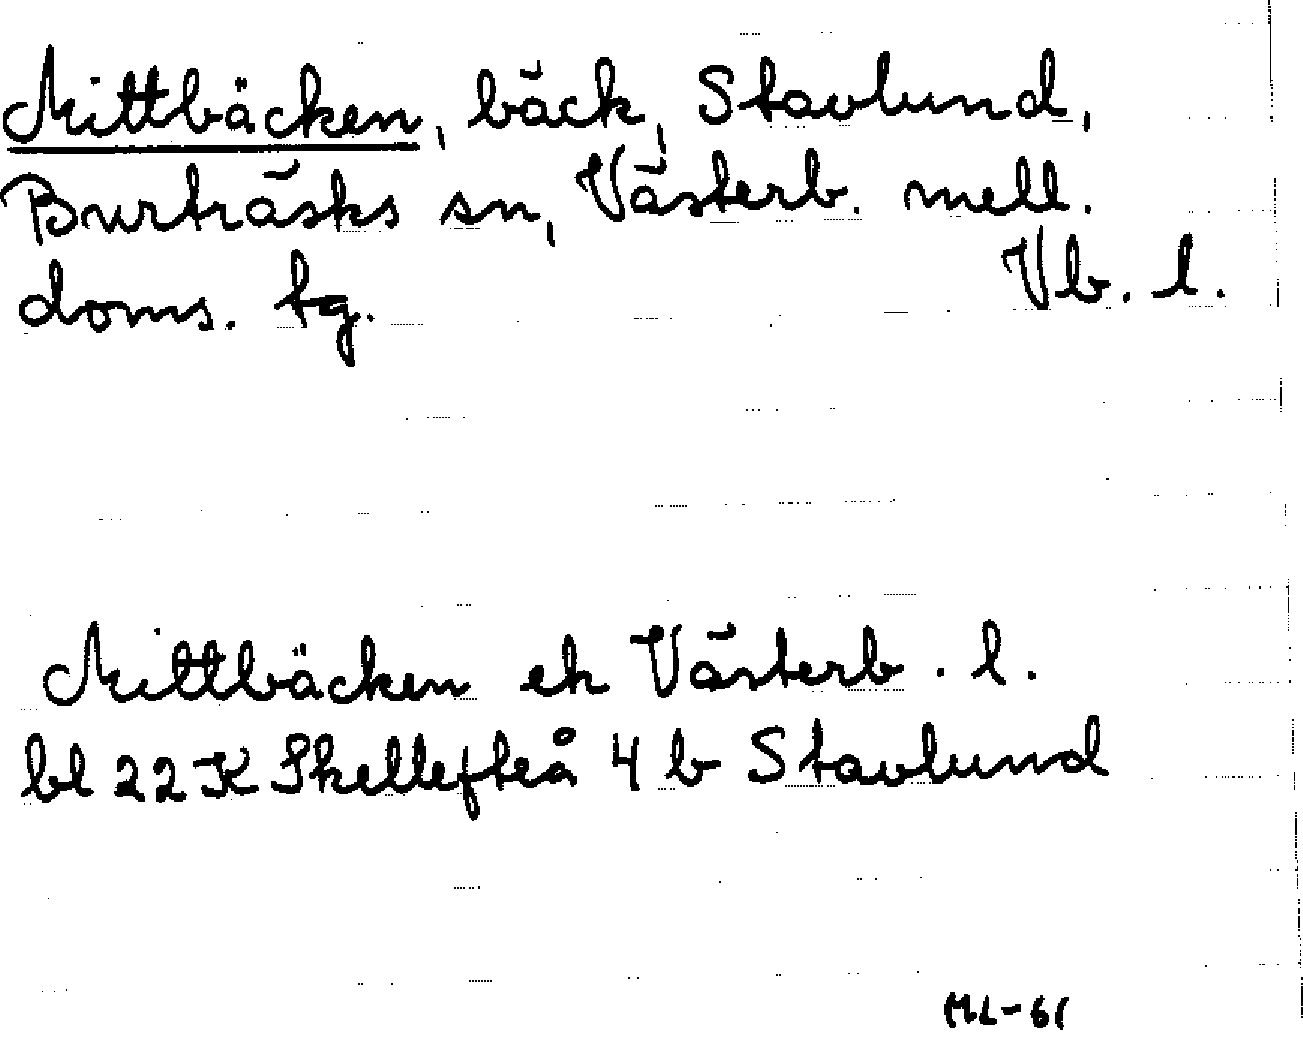 Mittbäcken, bäck, Stavlund,
Burträsks sn, Västerb. mell.
doms. tg. Vb. l.
Mittbäcken ek Västerb. l.
bl 22 K Skellefteå 4 b Stavlund
ML-61